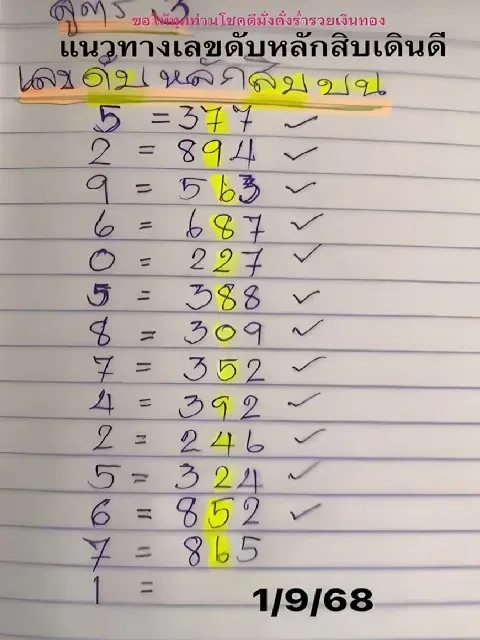 สูตร 13
ขอให้ทุกท่านโชคดีมั่งคั่งร่ำรวยเงินทอง
แนวทางเลขดับหลักสิบเดินดี
เลขดับหลักสิบบน
5 = 377 ✓
2 = 894 ✓
9 = 563 ✓
6 = 687 ✓
0 = 227 ✓
5 = 388 ✓
8 = 309 ✓
7 = 352 ✓
4 = 392 ✓
2 = 246 ✓
5 = 324 ✓
6 = 852 ✓
7 = 865
1 =
1/9/68